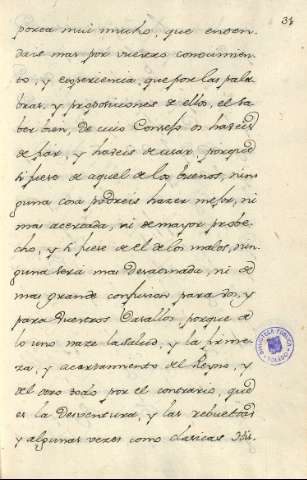 38
porea mui mucho, que enten-
dais mas por vuestro conocimien-
to, y experiencia, que por las pala
bras, y proposiciones de ellos, el sa
ber bien, de cuio Consejo os haveis
de fiar, y haveis de usar, porque
si fuese de aquel de los buenos, nin
guna cosa podreis hazer mejor, ni
mas acertada, ni de mayor probe
cho, y si fuese de el de los malos, nin
guna sera mas desaomada, ni de
mas grande confusion para vos, y
para vuestros Vasallos, porque de
lo uno naze la salud, y la firme
za, y acresentamiento del Reyno, y
del otro todo por el contrario, que
es la desventura, y las rebueltas
y algunas vezes como clasicas His-
BIBLIOTECA PUBLICA
TOLEDO